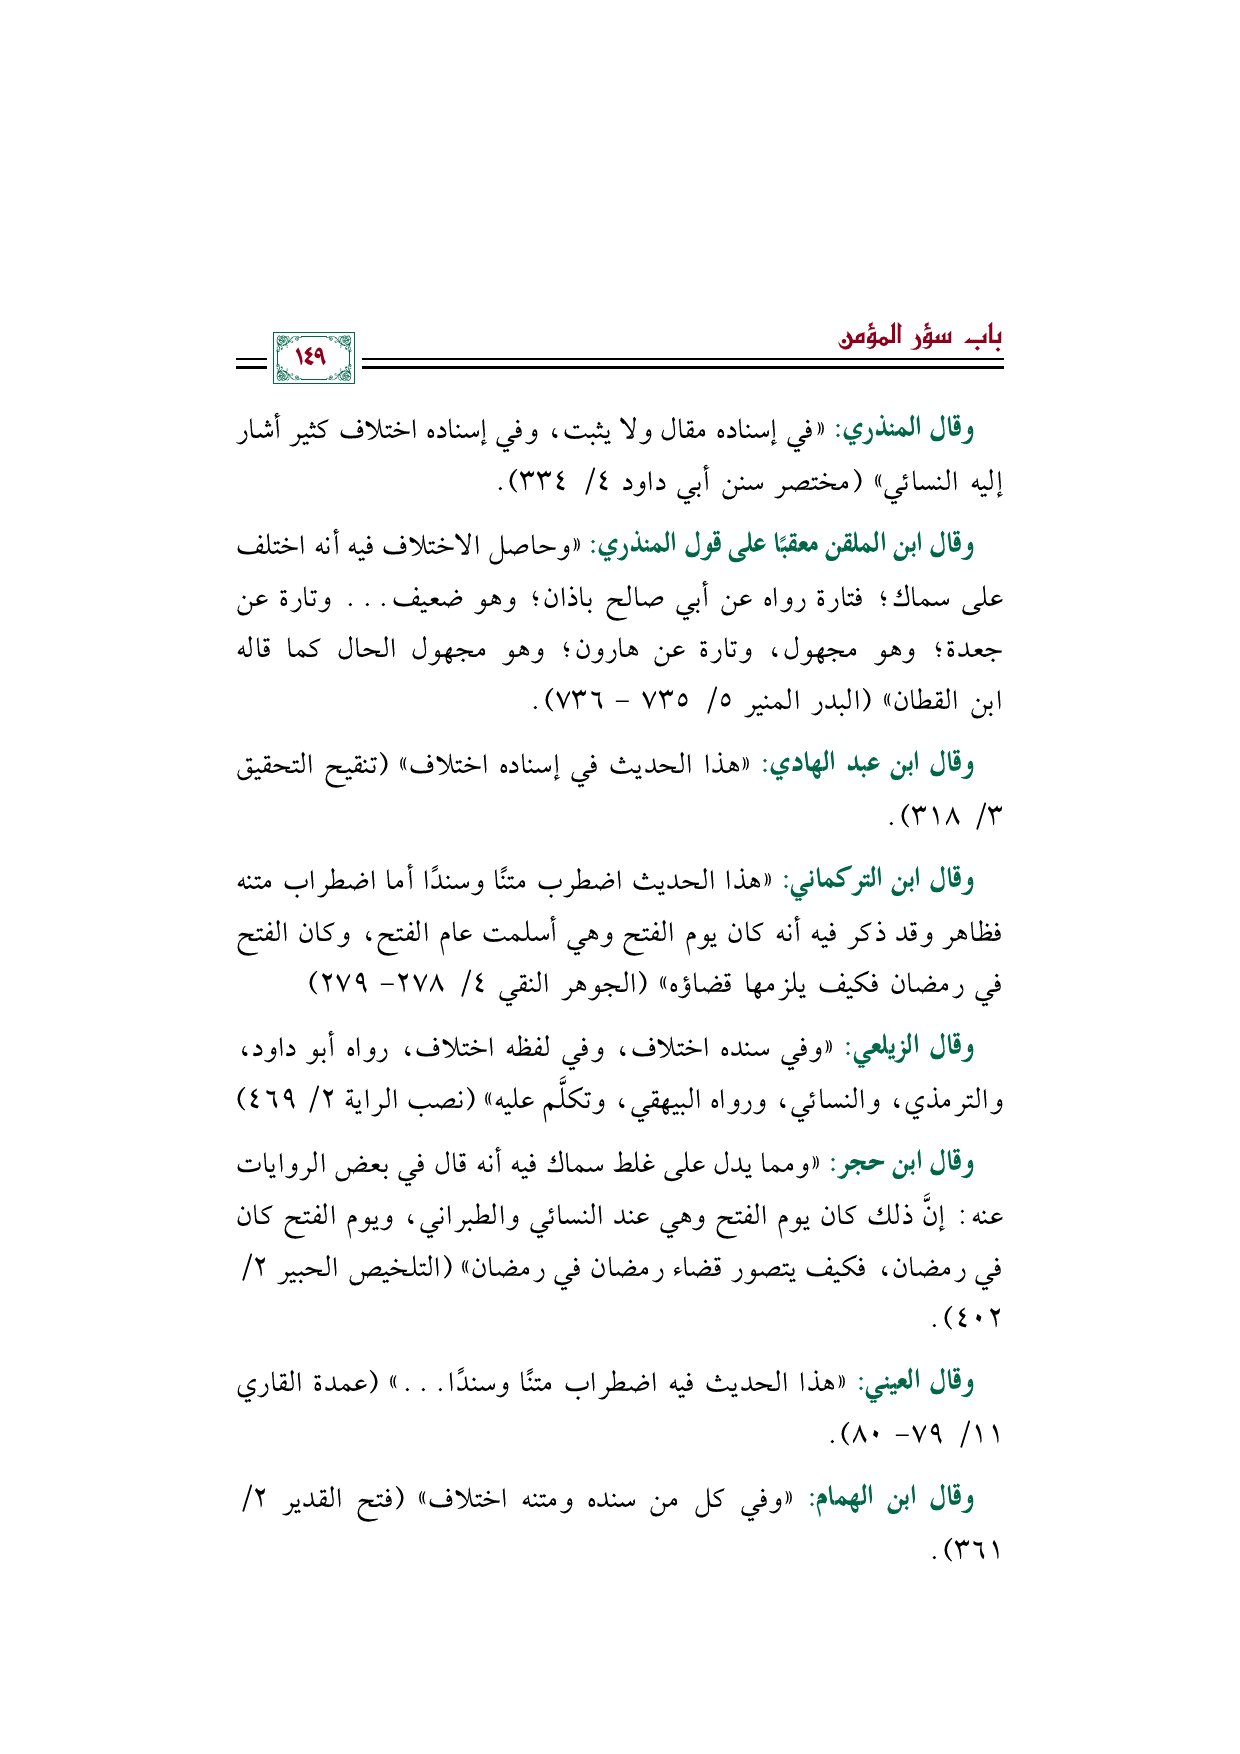 باب سؤر المؤمن
١٤٩
وقال المنذري: «في إسناده مقال ولا يثبت، وفي إسناده اختلاف كثير أشار
إليه النسائي» (مختصر سنن أبي داود ٤/ ٣٣٤).
وقال ابن الملقن معقبًا على قول المنذري: «وحاصل الاختلاف فيه أنه اختلف
على سماك؛ فتارة رواه عن أبي صالح باذان؛ وهو ضعيف... وتارة عن
جعدة؛ وهو مجهول، وتارة عن هارون؛ وهو مجهول الحال كما قاله
ابن القطان» (البدر المنير ٥/ ٧٣٥ – ٧٣٦).
وقال ابن عبد الهادي: «هذا الحديث في إسناده اختلاف» (تنقيح التحقيق
٣/ ٣١٨).
وقال ابن التركماني: «هذا الحديث اضطرب متنًا وسندًا أما اضطراب متنه
فظاهر وقد ذكر فيه أنه كان يوم الفتح وهي أسلمت عام الفتح، وكان الفتح
في رمضان فكيف يلزمها قضاؤه» (الجوهر النقي ٤/ ٢٧٨– ٢٧٩)
وقال الزيلعي: «وفي سنده اختلاف، وفي لفظه اختلاف، رواه أبو داود،
والترمذي، والنسائي، ورواه البيهقي، وتكلَّم عليه» (نصب الراية ٢/ ٤٦٩)
وقال ابن حجر: «ومما يدل على غلط سماك فيه أنه قال في بعض الروايات
عنه: إنَّ ذلك كان يوم الفتح وهي عند النسائي والطبراني، ويوم الفتح كان
في رمضان، فكيف يتصور قضاء رمضان في رمضان» (التلخيص الحبير ٢/
٤٠٢).
وقال العيني: «هذا الحديث فيه اضطراب متنًا وسندًا...» (عمدة القاري
١١/ ٧٩– ٨٠).
وقال ابن الهمام: «وفي كل من سنده ومتنه اختلاف» (فتح القدير ٢/
٣٦١).